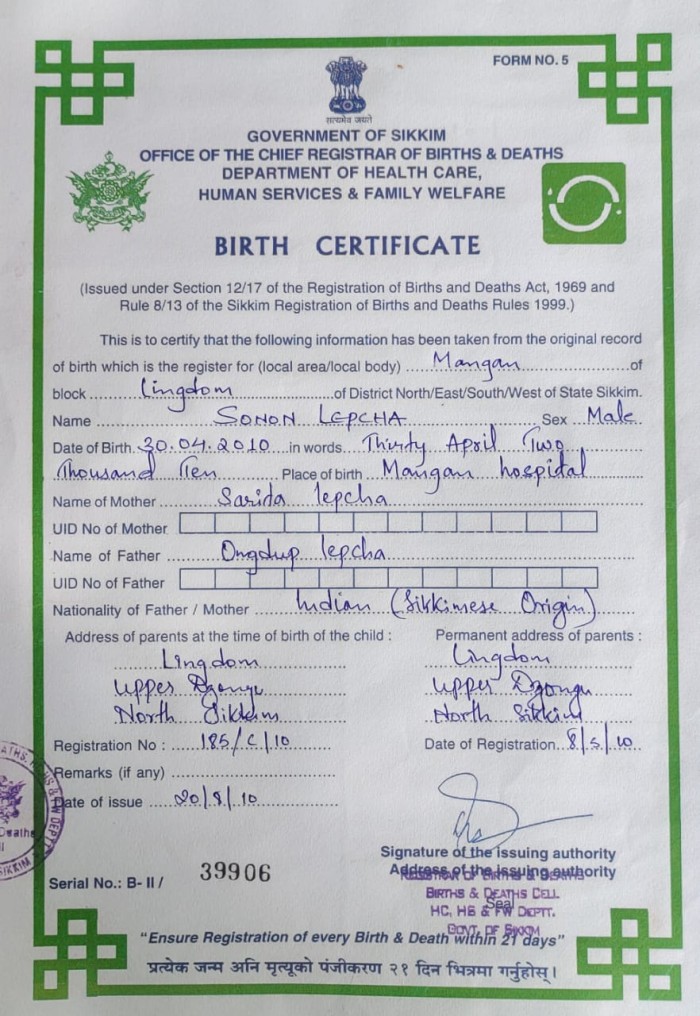 FORM NO. 5
सत्यमेव जयते
GOVERNMENT OF SIKKIM
OFFICE OF THE CHIEF REGISTRAR OF BIRTHS & DEATHS
DEPARTMENT OF HEALTH CARE,
HUMAN SERVICES & FAMILY WELFARE
BIRTH CERTIFICATE
(Issued under Section 12/17 of the Registration of Births and Deaths Act, 1969 and
Rule 8/13 of the Sikkim Registration of Births and Deaths Rules 1999.)
This is to certify that the following information has been taken from the original record
of birth which is the register for (local area/local body) Mangan of
block Lingdom of District North/East/South/West of State Sikkim.
Name SONON LEPCHA Sex Male
Date of Birth 30.04.2010 in words Thirty April Two
Thousand Ten Place of birth Mangan hospital
Name of Mother Sarita lepcha
UID No of Mother
Name of Father Ongdup lepcha
UID No of Father
Nationality of Father / Mother Indian (Sikkimese Origin)
Address of parents at the time of birth of the child :
Lingdom
Upper Dzongu
North Sikkim
Permanent address of parents :
Lingdom
Upper Dzongu
North Sikkim
Registration No : 185/C/10
Date of Registration 8/5/10
Remarks (if any)
Date of issue 20/8/10
Signature of the issuing authority
Address of the issuing authority
BIRTHS & DEATHS CELL
Seal
HC, HS & FW DEPTT.
GOVT. OF SIKKIM
Serial No.: B- II / 39906
"Ensure Registration of every Birth & Death within 21 days"
प्रत्येक जन्म अनि मृत्यूको पंजीकरण २१ दिन भित्रमा गर्नुहोस् ।